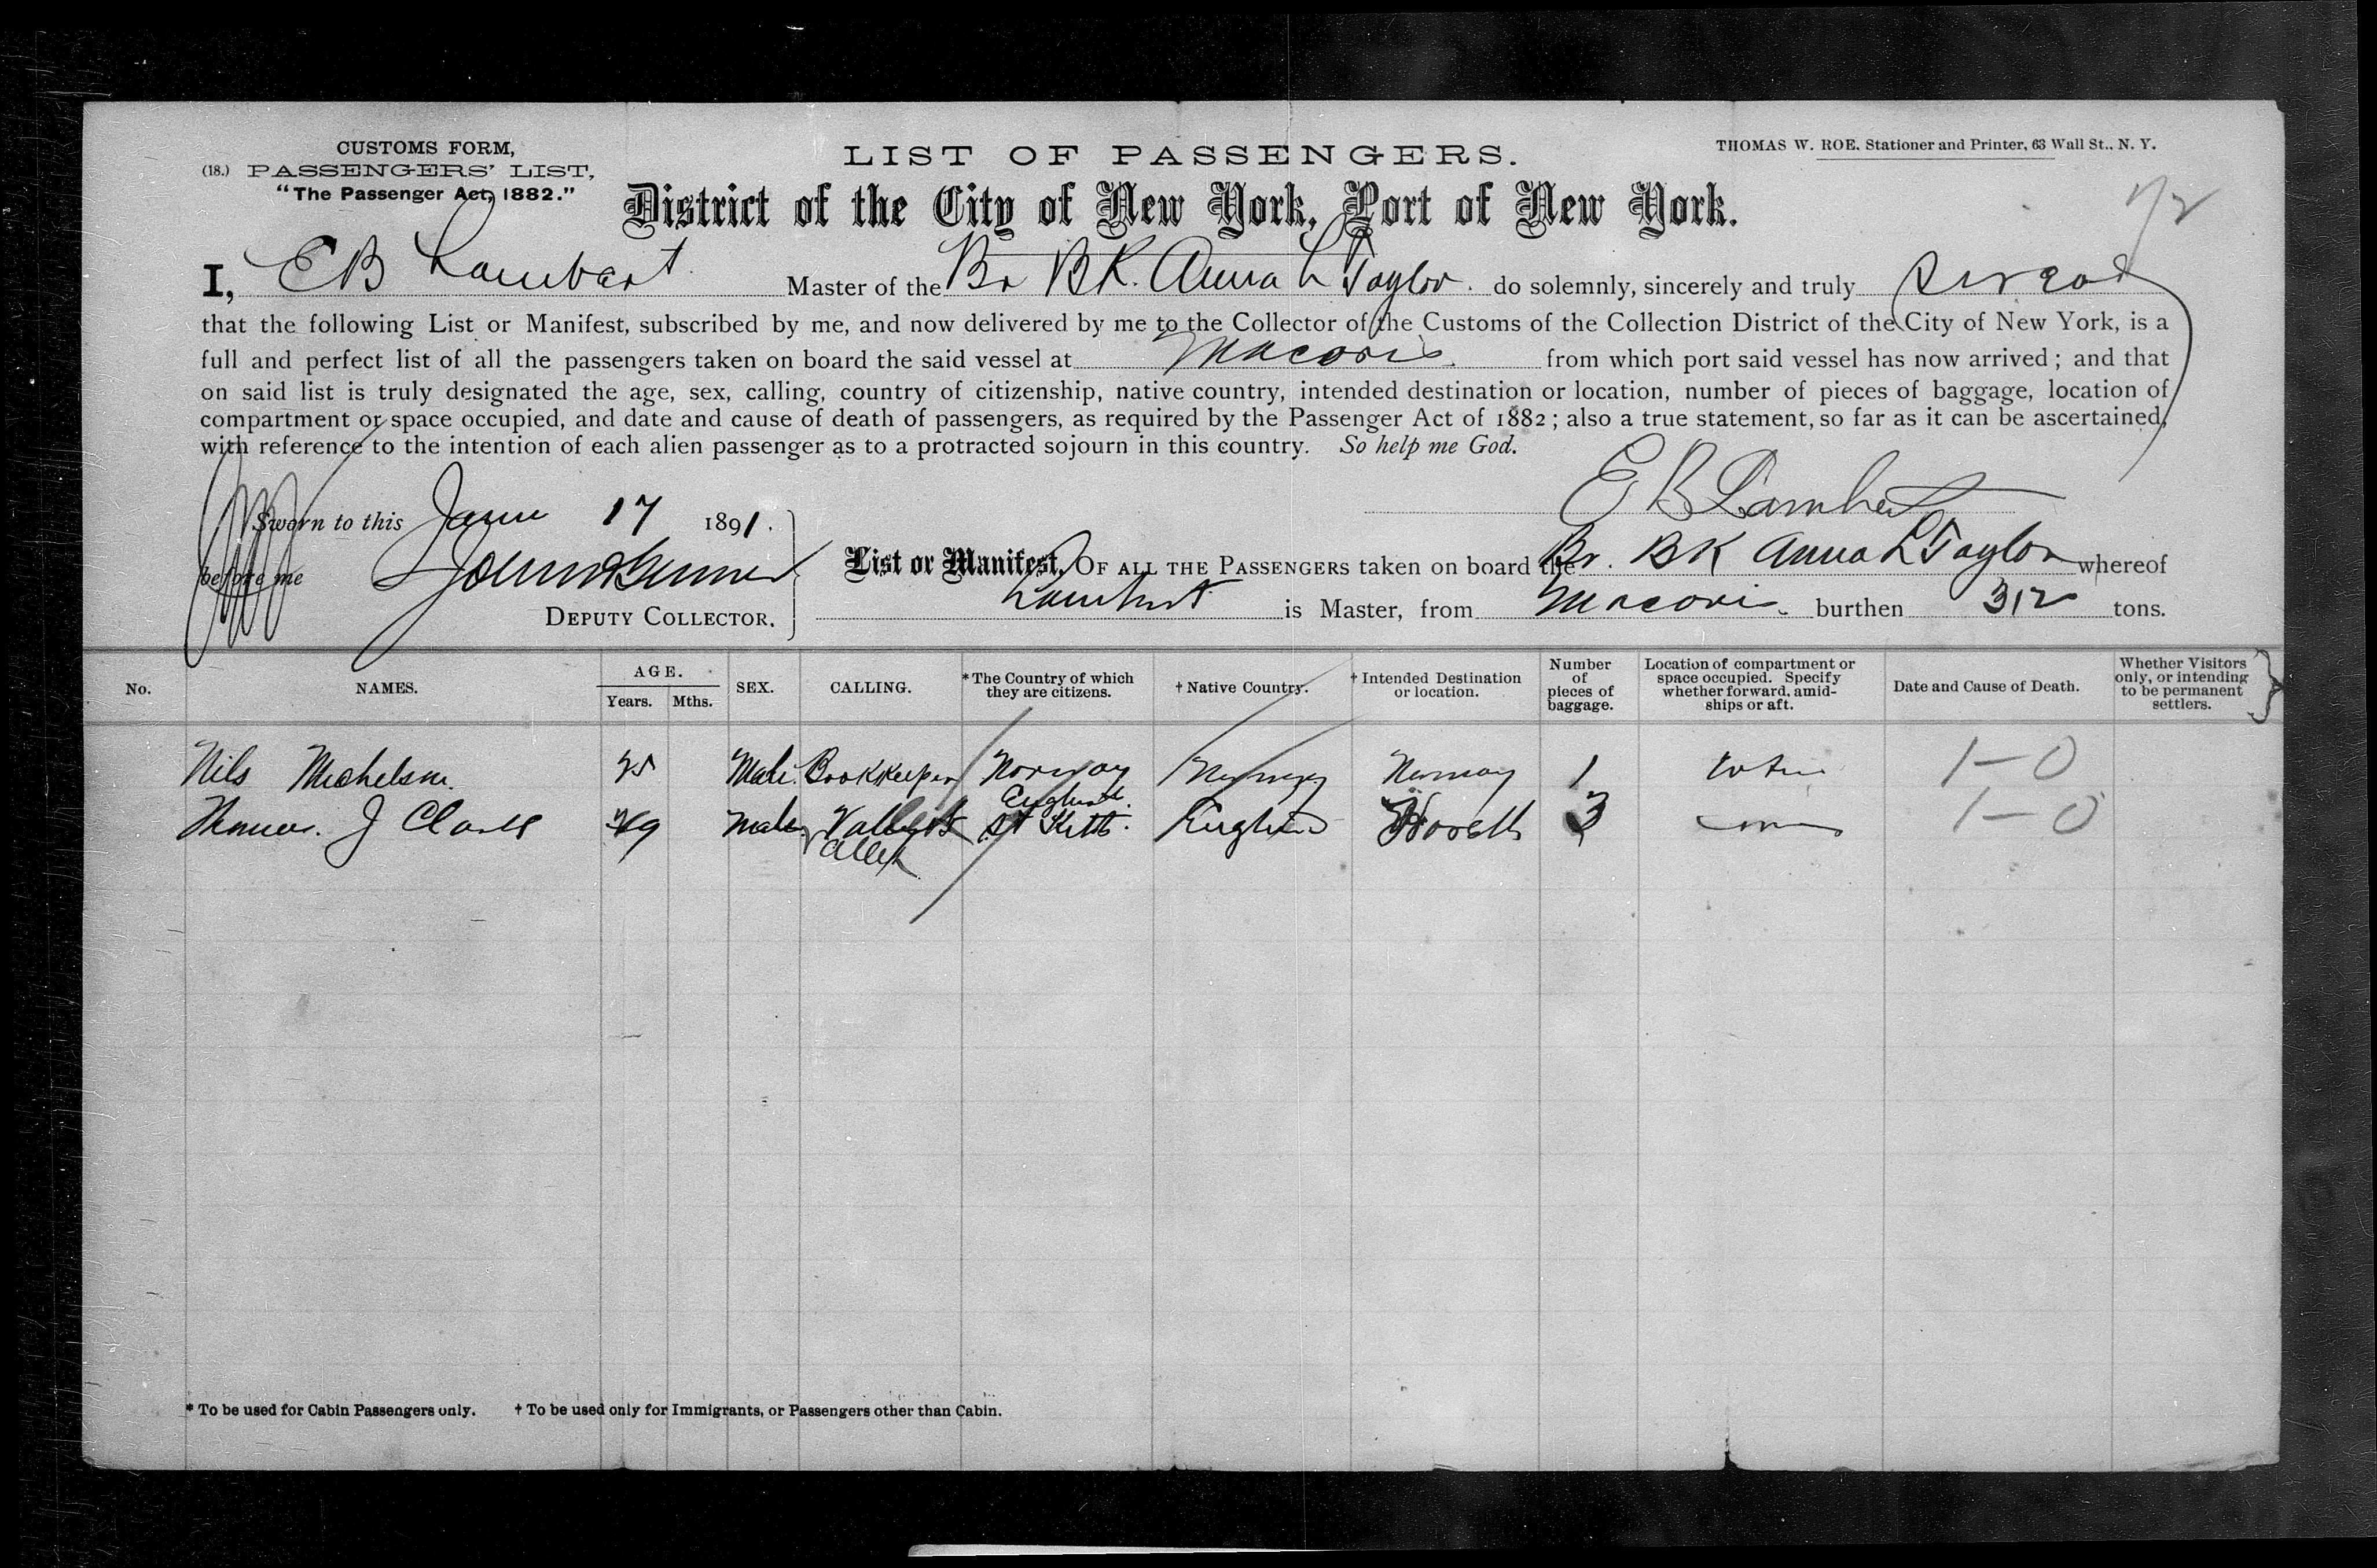 CUSTOMS FORM,
(18.) PASSENGERS' LIST,
"The Passenger Act, 1882."
LIST OF PASSENGERS.
THOMAS W. ROE, Stationer and Printer, 63 Wall St., N. Y.
District of the City of New York, Port of New York.
I, E B Lambert Master of the Br BK. Anna L Taylor. do solemnly, sincerely and truly
that the following List or Manifest, subscribed by me, and now delivered by me to the Collector of the Customs of the Collection District of the City of New York, is a
full and perfect list of all the passengers taken on board the said vessel at Macoris from which port said vessel has now arrived; and that
on said list is truly designated the age, sex, calling, country of citizenship, native country, intended destination or location, number of pieces of baggage, location of
compartment or space occupied, and date and cause of death of passengers, as required by the Passenger Act of 1882; also a true statement, so far as it can be ascertained,
with reference to the intention of each alien passenger as to a protracted sojourn in this country. So help me God.
E B Lambert
Sworn to this 17 1891.
before me
DEPUTY COLLECTOR.
List or Manifest, OF ALL THE PASSENGERS taken on board the Br. BK Anna L Taylor whereof
Lambert is Master, from Macoris burthen 312 tons.
No. NAMES. AGE. Years. Mths. SEX. CALLING. *The Country of which they are citizens. † Native Country. † Intended Destination or location. Number of pieces of baggage. Location of compartment or space occupied. Specify whether forward, amidships or aft. Date and Cause of Death. Whether Visitors only, or intending to be permanent settlers.
Nils Michelsen. 25 Male. Bookkeeper Norway Norway Norway 1 1-0
England
Thomas. J Clark 9 Male St Kitts. England 3 1-0
* To be used for Cabin Passengers only. † To be used only for Immigrants, or Passengers other than Cabin.